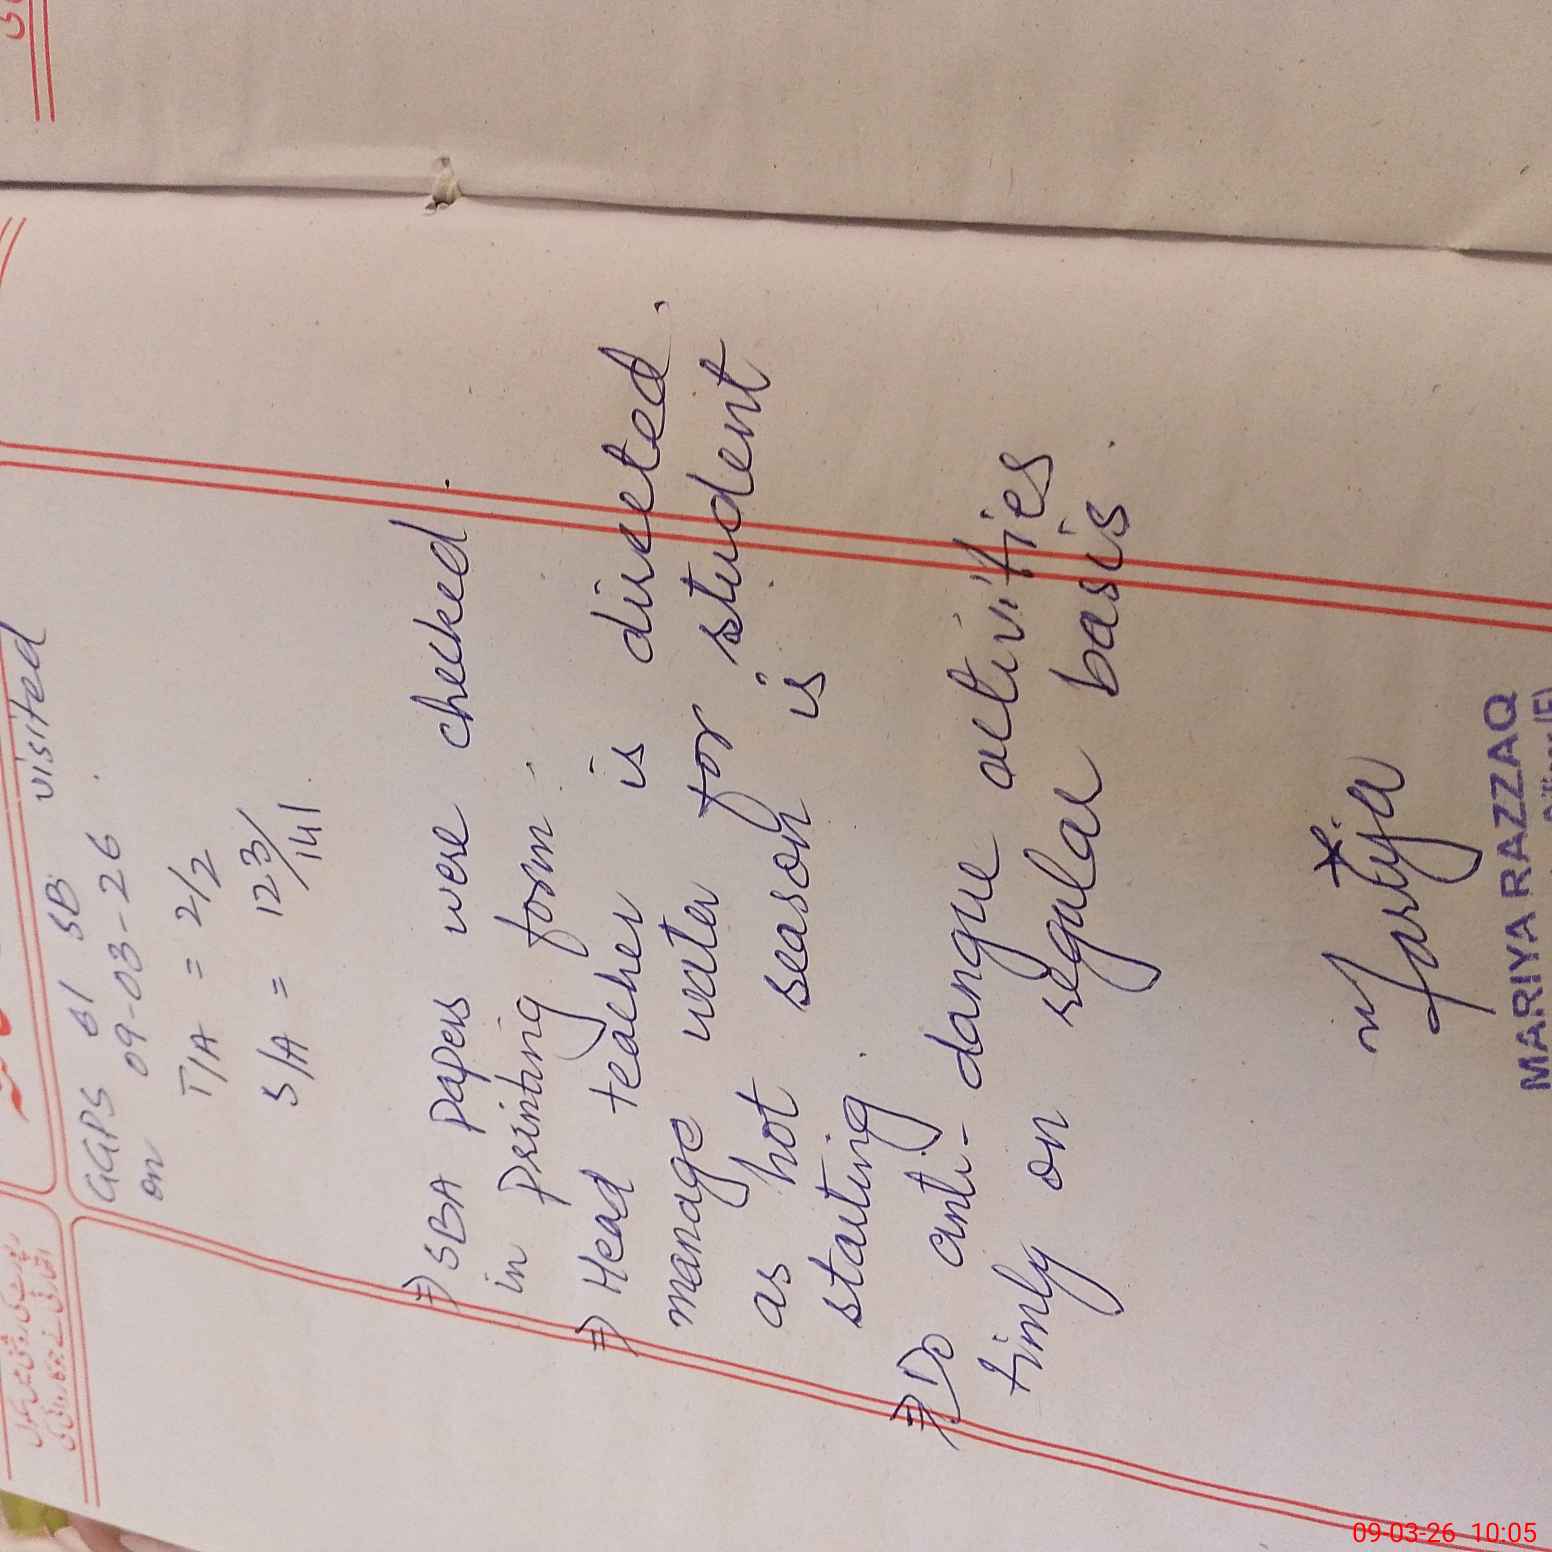 GGPS 61 SB visited
on 09-03-26.
T/A = 2/2
S/A = 123/141
⇒ SBA papers were checked.
in printing form.
⇒ Head teacher is directed.
manage water for student
as hot season is
starting.
⇒ Do anti-dangue activities
timly on regular basis.
MARIYA RAZZAQ
09-03-26 10:05